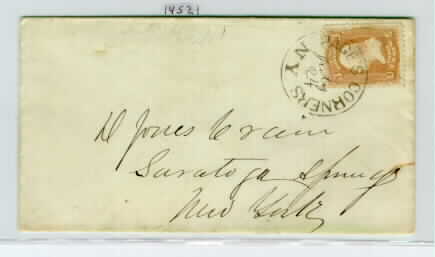 14521
CORNERS N Y
D Jones Crain
Saratoga Springs
New York